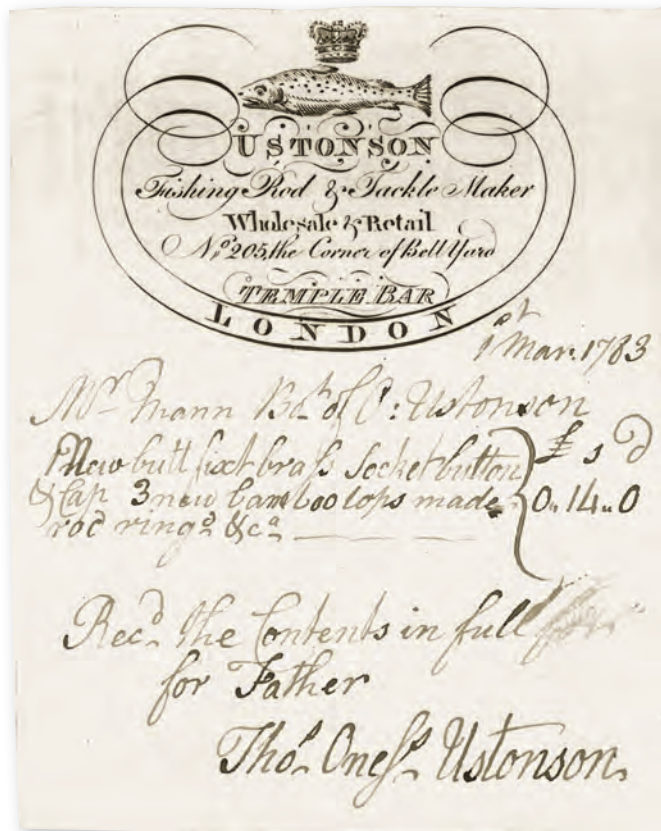 USTONSON
Fishing Rod & Tackle Maker
Wholesale & Retail
No. 205, the Corner of Bell Yard
TEMPLE BAR
LONDON
1st Mar. 1783
Mr Mann Bot of O: Ustonson
1 New butt fixt braſs Socket button
& Cap 3 new bamboo tops made
rod ringd &ca
£ s d
0 .. 14 .. 0
Recd the Contents in full
for Father
Thos Oness Ustonson